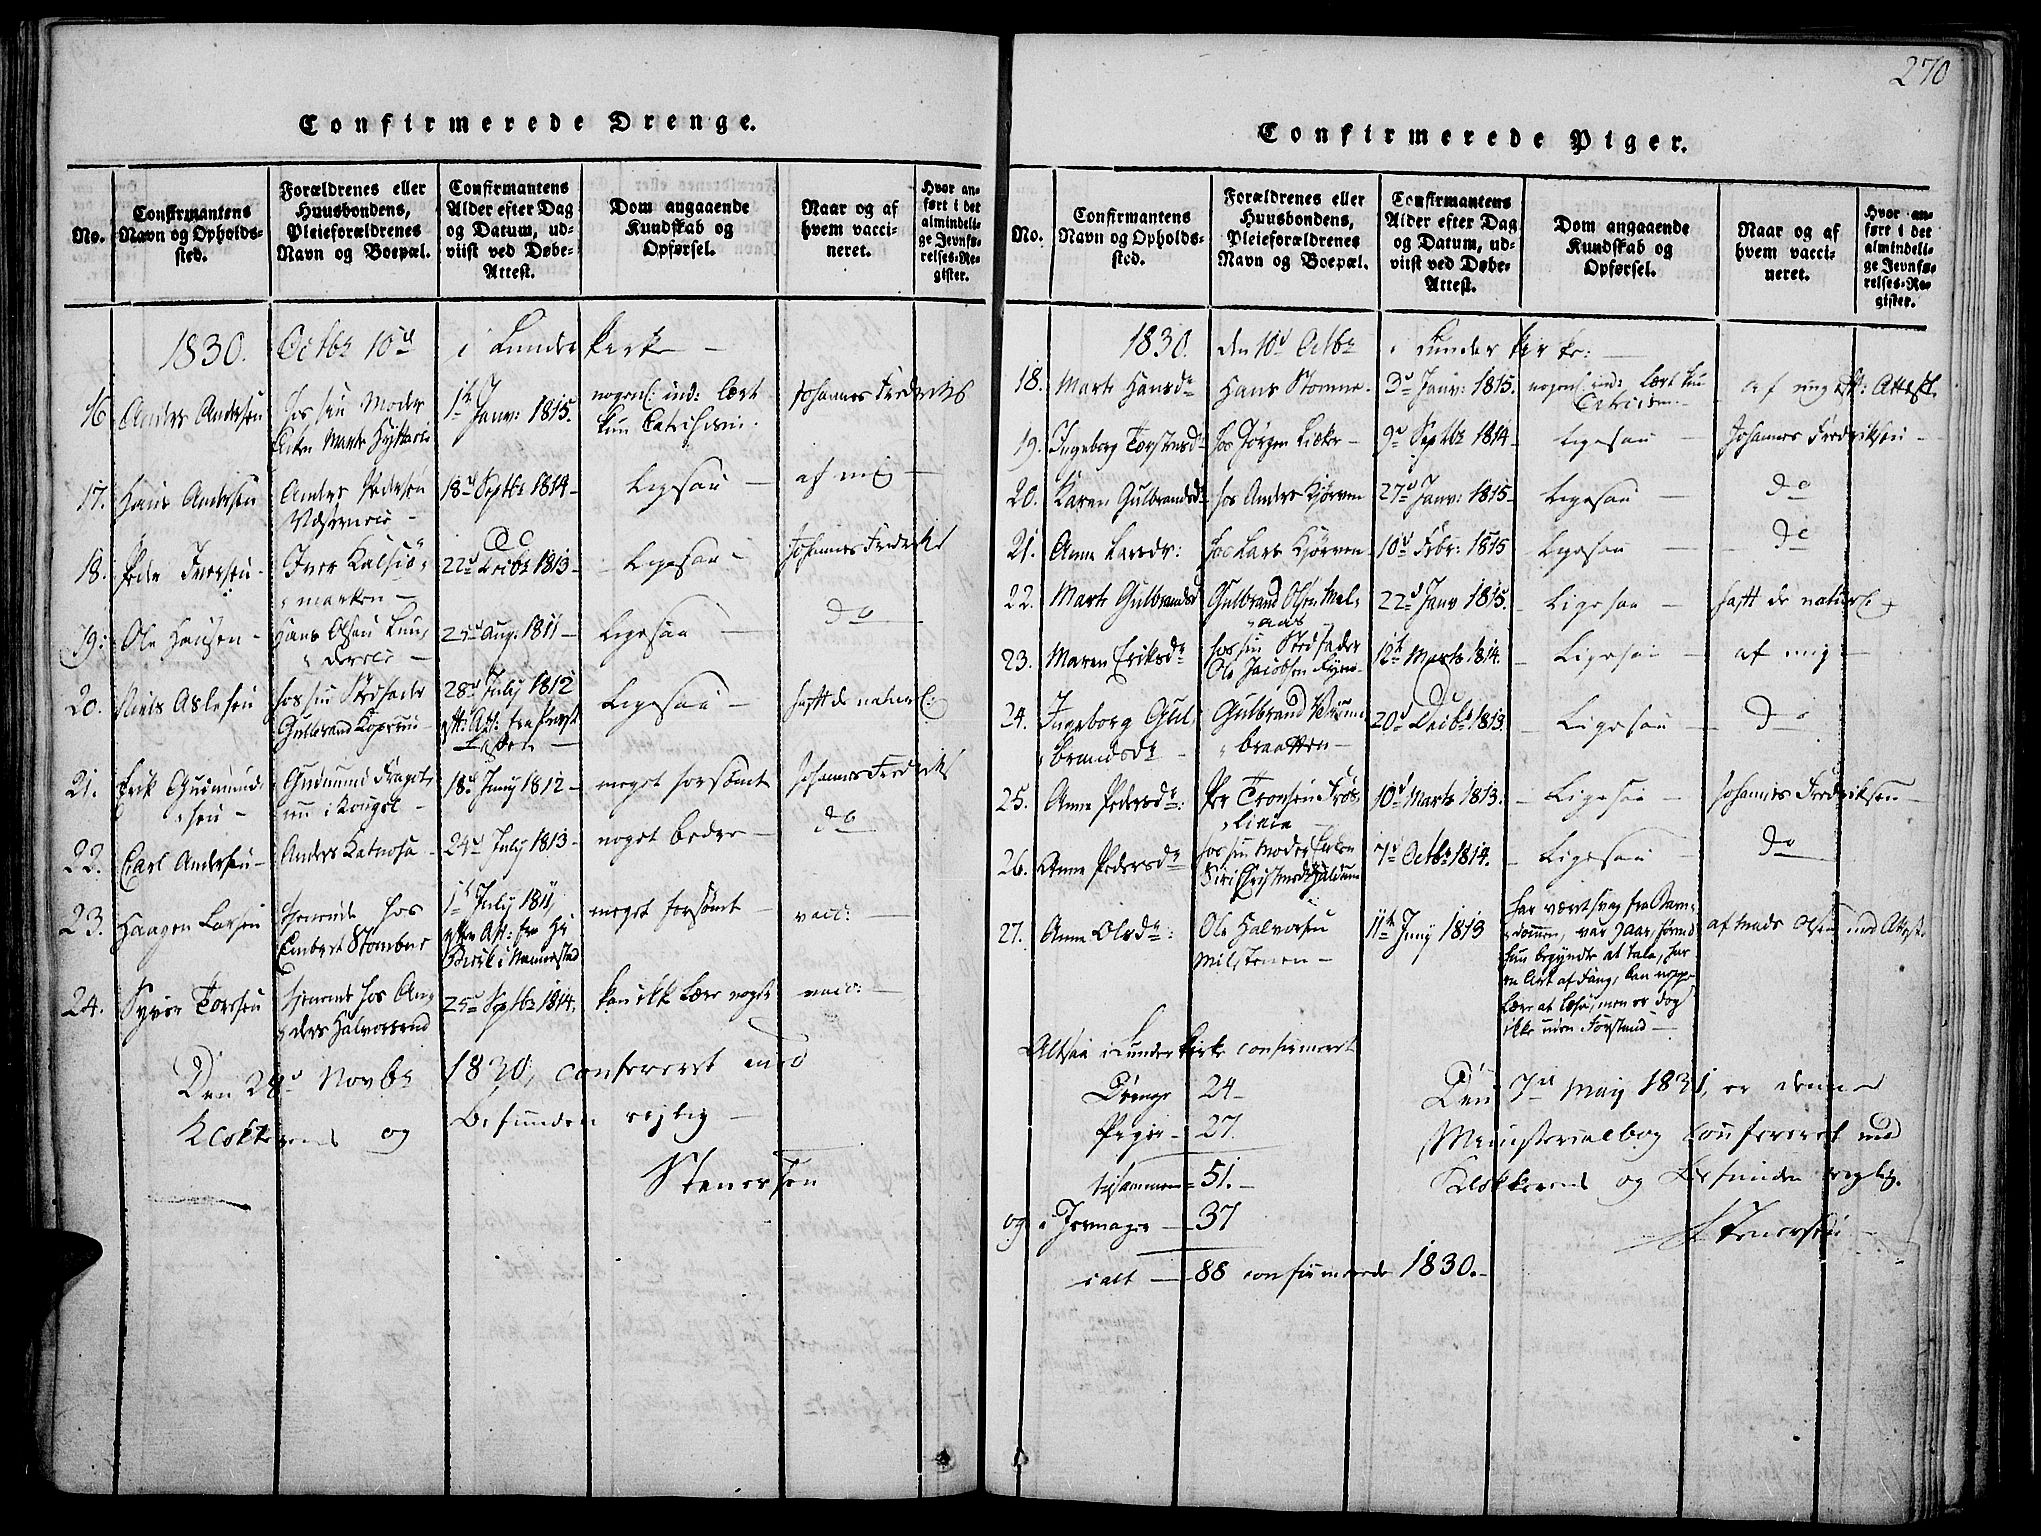 Confirmerede Drenge.
No.
Confirmantens
Navn og Opholds-
sted.
Forældrenes eller
Huusbondens,
Pleieforældrenes
Navn og Boepæl.
Confirmantens
Alder efter Dag
og Datum, ud-
viist ved Døbe-
Attest.
Dom angaaende
Kundskab og
Opførsel.
Naar og af
hvem vacci-
neret.
Hvor an-
ført i det
almindeli-
ge Jevnfø-
relses-Re-
gister.
1830. Octbr 10d i Lunder Kirke
16 Anders Andersen
hos sin Moder
Enken Marte
1te
Janv: 1815.
nogenl: ind: lært
kun Catechism.
Johannes Frederiks
17. Hans Andersen
Anders Pedersen
18d Septbr 1814
Ligesaa
af mig
18. Peder Iversen
Iver
marken
22d Decbr 1813
Ligesaa
Johannes Frederiks
19: Ole Hansen
Hans Olsen
25d Aug. 1811
Ligesaa
do
20. Niels Aslesen
hos sin Stedfader
Gulbrand
28d July 1812
Ligesaa
haft de naturl:
21. Erik Gudmund-
sen
Gudmund
18d Juny 1812
meget forsømt
Johannes Frederiks
22. Carl Andersen
Anders Katnosa
24d July 1813
noget bedre
do
23. Haagen Larsen
tjenende hos
Embret
1te July 1811,
meget forsømt
vacc:
24. Syver Torsen
tjenende hos An-
ders Halvorsrud
25d Septbr 1814.
kan ikke lære noget
vacc:
Den 28d Novbr 1830, confereret med
Klokkerens og befunden rigtig
Stenersen
270
Confirmerede Piger.
No.
Confirmantens
Navn og Opholds-
sted.
Forældrenes eller
Huusbondens,
Pleieforældrenes
Navn og Boepæl.
Confirmantens
Alder efter Dag
og Datum, ud-
viist ved Døbe-
Attest.
Dom angaaende
Kundskab og
Opførsel.
Naar og af
hvem vacci-
neret.
Hvor an-
ført i det
almindeli-
ge Jevnfø-
relses-Re-
gister.
1830. den 10d Octbr i Lunder Kirke:
18. Marte Hansdr
Hans
3d Janv: 1815.
nogenl: ind: lært kun
Catecism.
af mig Attest.
19. Ingeborg Torstensd
hos Jørgen
9d Septbr 1814
Ligesaa
Johannes Fredriksen
20. Karen Gulbrandsd
hos Anders Hjørven
27d Janv: 1815
Ligesaa
do
21. Anne Larsdr:
hos Lars Hjørven
10d Febr: 1815
Ligesaa
do
22. Marte Gulbrandsd
Gulbrand Olsen
22d Janv 1815.
Ligesaa
haft de naturl:
23. Maren Eriksdr
hos sin Stedfader
Ole Jacobsen
12te Marts 1814.
Ligesaa
af mig
24. Ingeborg Gul-
brandsdr
Gulbrand
braatten
20d Decbr 1813.
Ligesaa
do
25. Anne Pedersdr:
Per Tronsen
10d Marts 1813.
Ligesaa
Johannes Fredriksen
26. Anne Pedersdr
hos sin Moder Enken
Siri
7d Octbr 1814.
Ligesaa
do
27. Anne Olsdr:
Ole Halvorsen
Milsteen
11te Juny 1813
har været svag fra Barn-
dommen, var 9 Aar, førend
hun begyndte at tale, har
en Art af
lære at læse, men er dog
ikke uden Forstand
af Mads Olsen med Attest.
Altsaa i Lunder Kirke confirmeret
Drenge 24
Piger 27.
tilsammen 51.
og i Jevnager 37
ialt 88 confirmerede 1830.
Den 7d May 1831, er denne
Ministerialbog confereret med
Klokkerens og befunden rigtig.
Stenersen